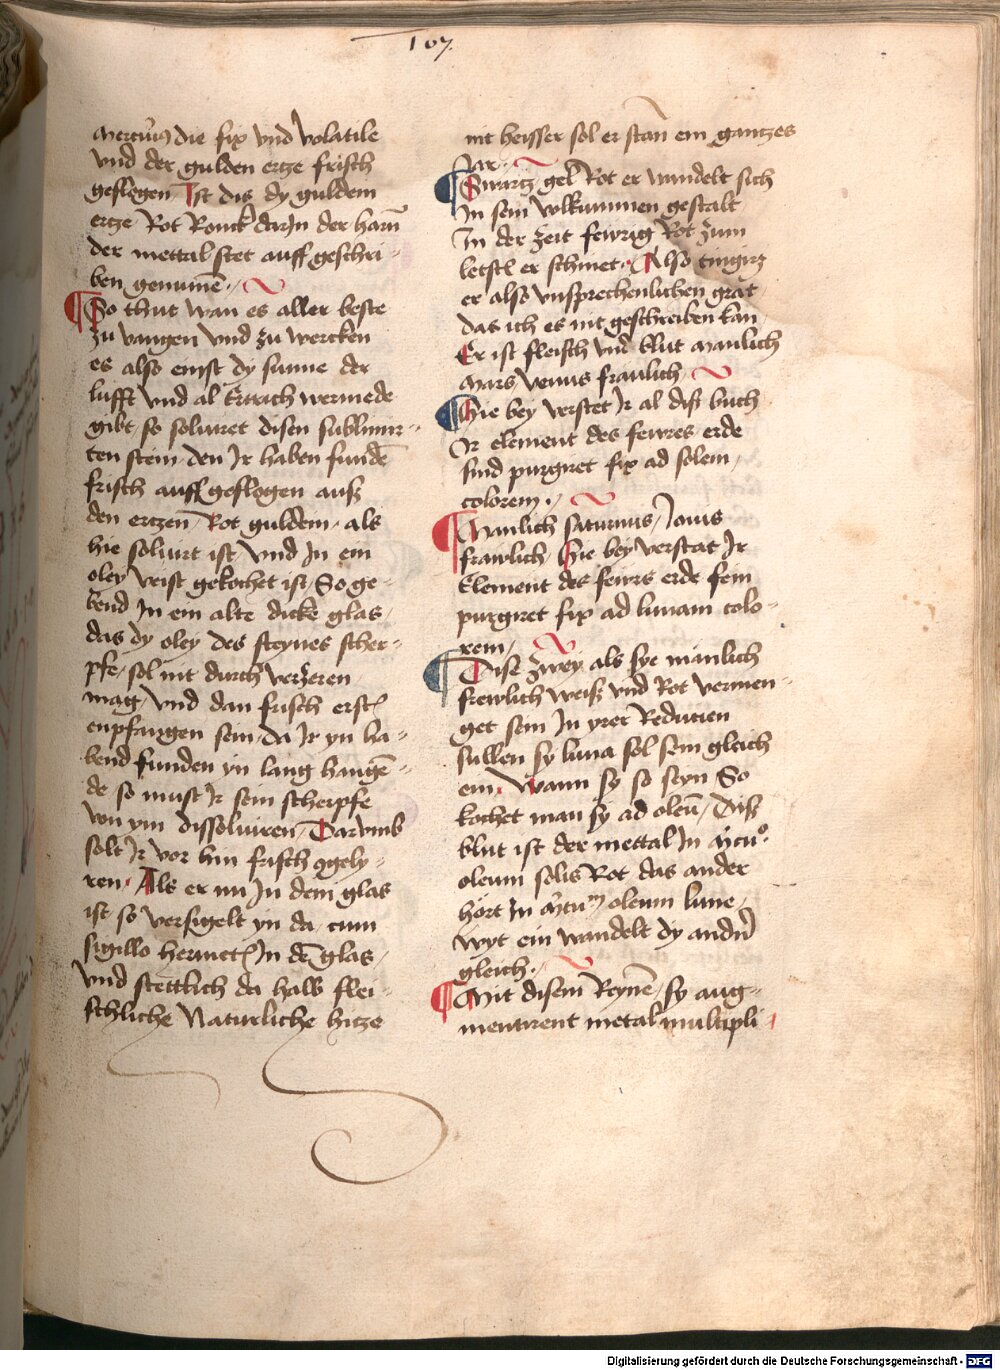 107.
mercurius die fix vnd volatile
vnd der gulden ertze frisch
geflogen Ist dis dy guldein
ertze Rot Rouck darJn der harn̄
der mettal stet auff geschri-
ben genumē.
So thut wan es aller beste
zu vangen vnd zu wercken
es also einst dy sunne der
lufft vnd al Ertrich wermede
gibt, so soluiret disen sublimir-
ten stein, den Jr haben fundē
frisch auff geflogen ausz
den ertzen Rot guldein, als
hie soluirt ist vnd Jn ein
oley veist gekochet ist, So ge-
bend Jn ein alte dicke glas,
das dy oley des steynes scher-
pfe, sol nit durch verzeren
mag, vnd dan frisch erst
enpfangen sein, da Jr yn ha-
bend funden yn lang hangē-
de so must Jr sein scherpfe
von ym dissoluiren, Darvmb
solt Jr vor hin frisch ꝯgely-
ren, Als er nu Jn dem glas
ist so versigelt yn da, cum
sigillo hermetis Jn dē glas,
vnd stettlich da halb flei-
schliche Naturliche hitze
nit heisser sol er stan ein gantzes
Jar.
Swartz gel Rot er wandelt sich
Jn sein volkummen gestalt
Jn der zeit fewrig Rot zum
letst er schinet. Also tingirt
er also vnsprechenlichen grat
das ich es nit geschreiben kan
Er ist fleisch vnd blut manlich
Mars venus fraulich
Hie bey verstet Jr al disz buch
Jr element des fewres, erde
sind purgiret fix ad solem,
colorem.
Manlich saturnus, Jouis
frawlich, Hie bey verstat Jr
Element des fewrs erde sein
purgiret fix ad lunam colo-
rem,
Dise zwey, als sye manlich
frewlich weisz vnd Rot vermen-
get sein Jn yrer Reducien
sullen sy luna sol sein gleich
ein, Wann sy so seyn So
kochet man sy ad oleū, Disz
blut ist der mettal Jn mrͨcuͦ
oleum solis Rot das ander
hort Jn mrͨcuͦ oleum lune,
wyt ein wandelt dy andn̄
gleich.
Mit disem Reynē, sy aug-
mentirent metal multipli
Digitalisierung gefördert durch die Deutsche Forschungsgemeinschaft - DFG